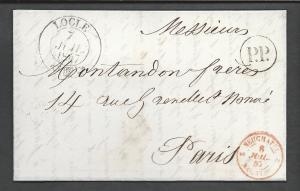 LOCLE
7
JUIL
Messieurs
P.P.
Montandon frères
14 rue Grenelle St Honoré
Paris
NEUCHATEL
8
JUIL